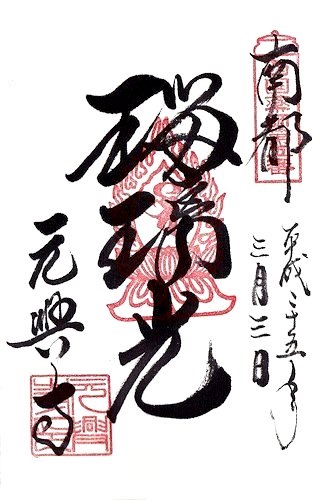 南都
平成二十五年
三月三日
瑠璃光
元興寺